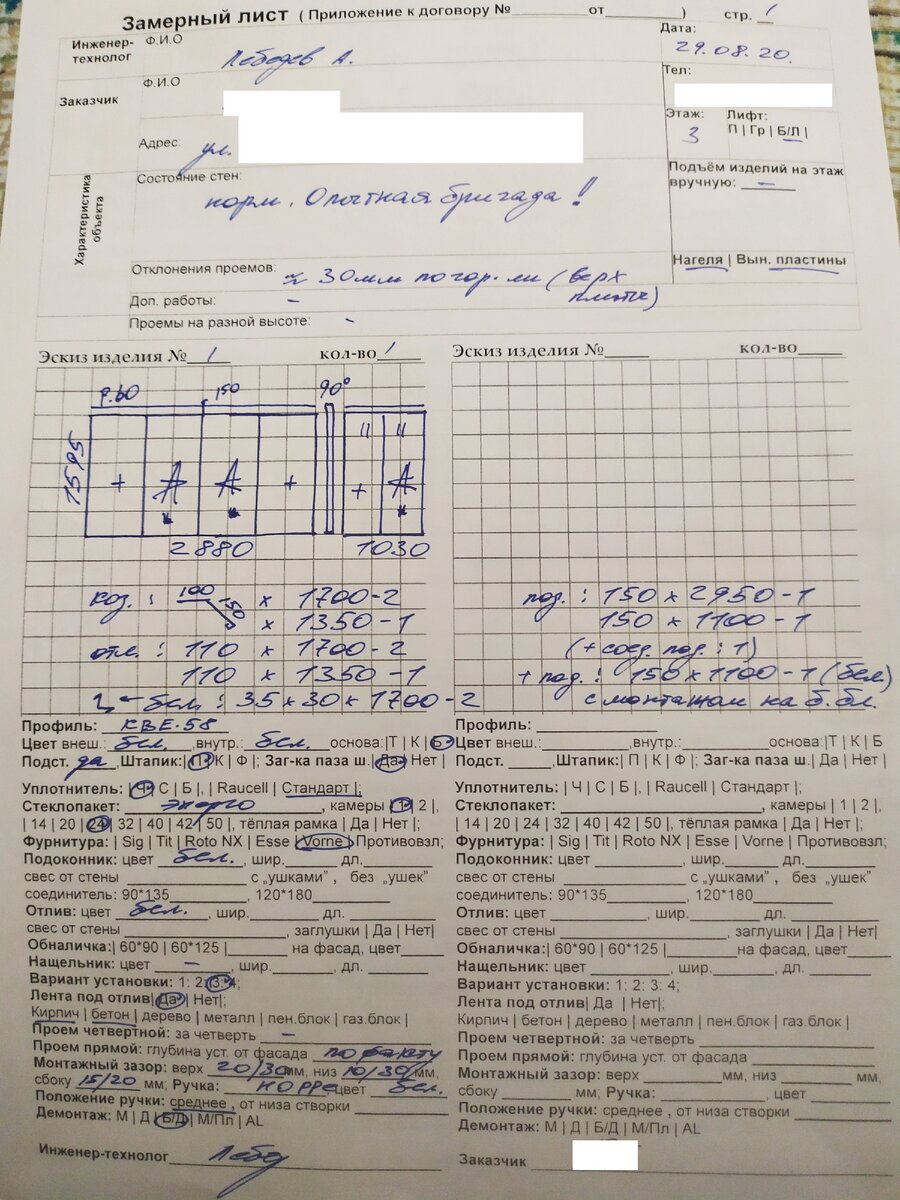 Замерный лист ( Приложение к договору №________ от________) стр. 1
Инженер-технолог Ф.И.О Лебедев А. Дата: 29.08.20.
Заказчик Ф.И.О Тел:
Адрес: ул. Этаж: 3 Лифт: П | Гр | Б/Л |
Характеристика объекта
Состояние стен: норм. Опытная бригада! Подъём изделий на этаж вручную: –
Отклонения проемов: ≈ 30мм по гор-ли (верх плиты) Нагеля | Вын. пластины
Доп. работы: –
Проемы на разной высоте: –
Эскиз изделия № 1 кол-во 1
Эскиз изделия №______ кол-во______
150 90°
1595 + А А + + А
2880 1030
коз. : 100 150 х 1700-2
х 1350-1
отл. : 110 х 1700-2
110 х 1350-1
бел. : 35 х 30 х 1700-2
под. : 150 х 2950-1
150 х 1100-1
(+ соед. под. : 1)
+ под. : 150 х 1100-1 (бел)
с монтажом на б.бл.
Профиль: КВЕ-58
Цвет внеш.: бел. ,внутр.: бел. основа:|Т | К | Б
Подст. да ,Штапик:| П | К | Ф |; Заг-ка паза ш.| Да | Нет |
Уплотнитель: | Ч | С | Б |, | Raucell | Стандарт |;
Стеклопакет: энерго , камеры | 1 | 2 |,
| 14 | 20 | 24 | 32 | 40 | 42 | 50 |, тёплая рамка | Да | Нет |;
Фурнитура: | Sig | Tit | Roto NX | Esse | Vorne | Противовзл;
Подоконник: цвет бел. , шир.______ дл.______
свес от стены ________ с „ушками” , без „ушек”
соединитель: 90*135______, 120*180______
Отлив: цвет бел. , шир.______ дл.______
свес от стены ________, заглушки | Да | Нет|
Обналичка:| 60*90 | 60*125 |______ на фасад, цвет______
Нащельник: цвет – , шир.______, дл.______
Вариант установки: 1: 2: 3: 4;
Лента под отлив| Да | Нет|;
Кирпич | бетон | дерево | металл | пен.блок | газ.блок |
Проем четвертной: за четверть –
Проем прямой: глубина уст. от фасада по факту
Монтажный зазор: верх 20/30 мм, низ 10/30 мм,
сбоку 15/20 мм; Ручка: Hoppe цвет бел.
Положение ручки: среднее , от низа створки ______
Демонтаж: М | Д | Б/Д | М/Пл | AL
Инженер-технолог
Профиль: ______
Цвет внеш.:______, внутр.:______ основа:|Т | К | Б
Подст. ____,Штапик:| П | К | Ф |; Заг-ка паза ш.| Да | Нет |
Уплотнитель: | Ч | С | Б |, | Raucell | Стандарт |;
Стеклопакет: ______, камеры | 1 | 2 |,
| 14 | 20 | 24 | 32 | 40 | 42 | 50 |, тёплая рамка | Да | Нет |;
Фурнитура: | Sig | Tit | Roto NX | Esse | Vorne | Противовзл;
Подоконник: цвет ______, шир.______ дл.______
свес от стены ________ с „ушками” , без „ушек”
соединитель: 90*135______, 120*180______
Отлив: цвет ______, шир.______ дл.______
свес от стены ________, заглушки | Да | Нет|
Обналичка:| 60*90 | 60*125 |______ на фасад, цвет______
Нащельник: цвет______, шир.______, дл.______
Вариант установки: 1: 2: 3: 4;
Лента под отлив| Да | Нет|;
Кирпич | бетон | дерево | металл | пен.блок | газ.блок |
Проем четвертной: за четверть ______
Проем прямой: глубина уст. от фасада ______
Монтажный зазор: верх ______мм, низ ______ мм,
сбоку ______ мм; Ручка:______, цвет ______
Положение ручки: среднее , от низа створки ______
Демонтаж: М | Д | Б/Д | М/Пл | AL
Заказчик